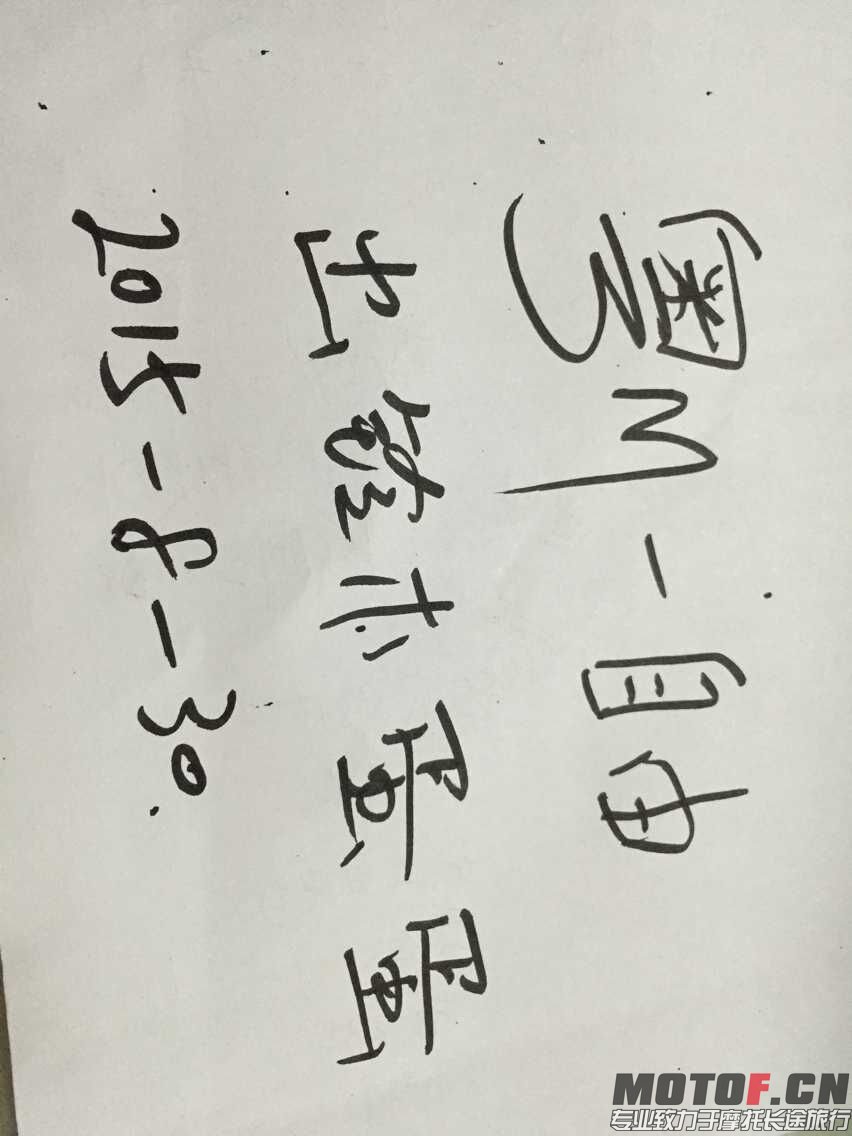 粤M-自由
出铃木蛋蛋
2015-8-30.
MOTOF.CN
专业致力于摩托长途旅行